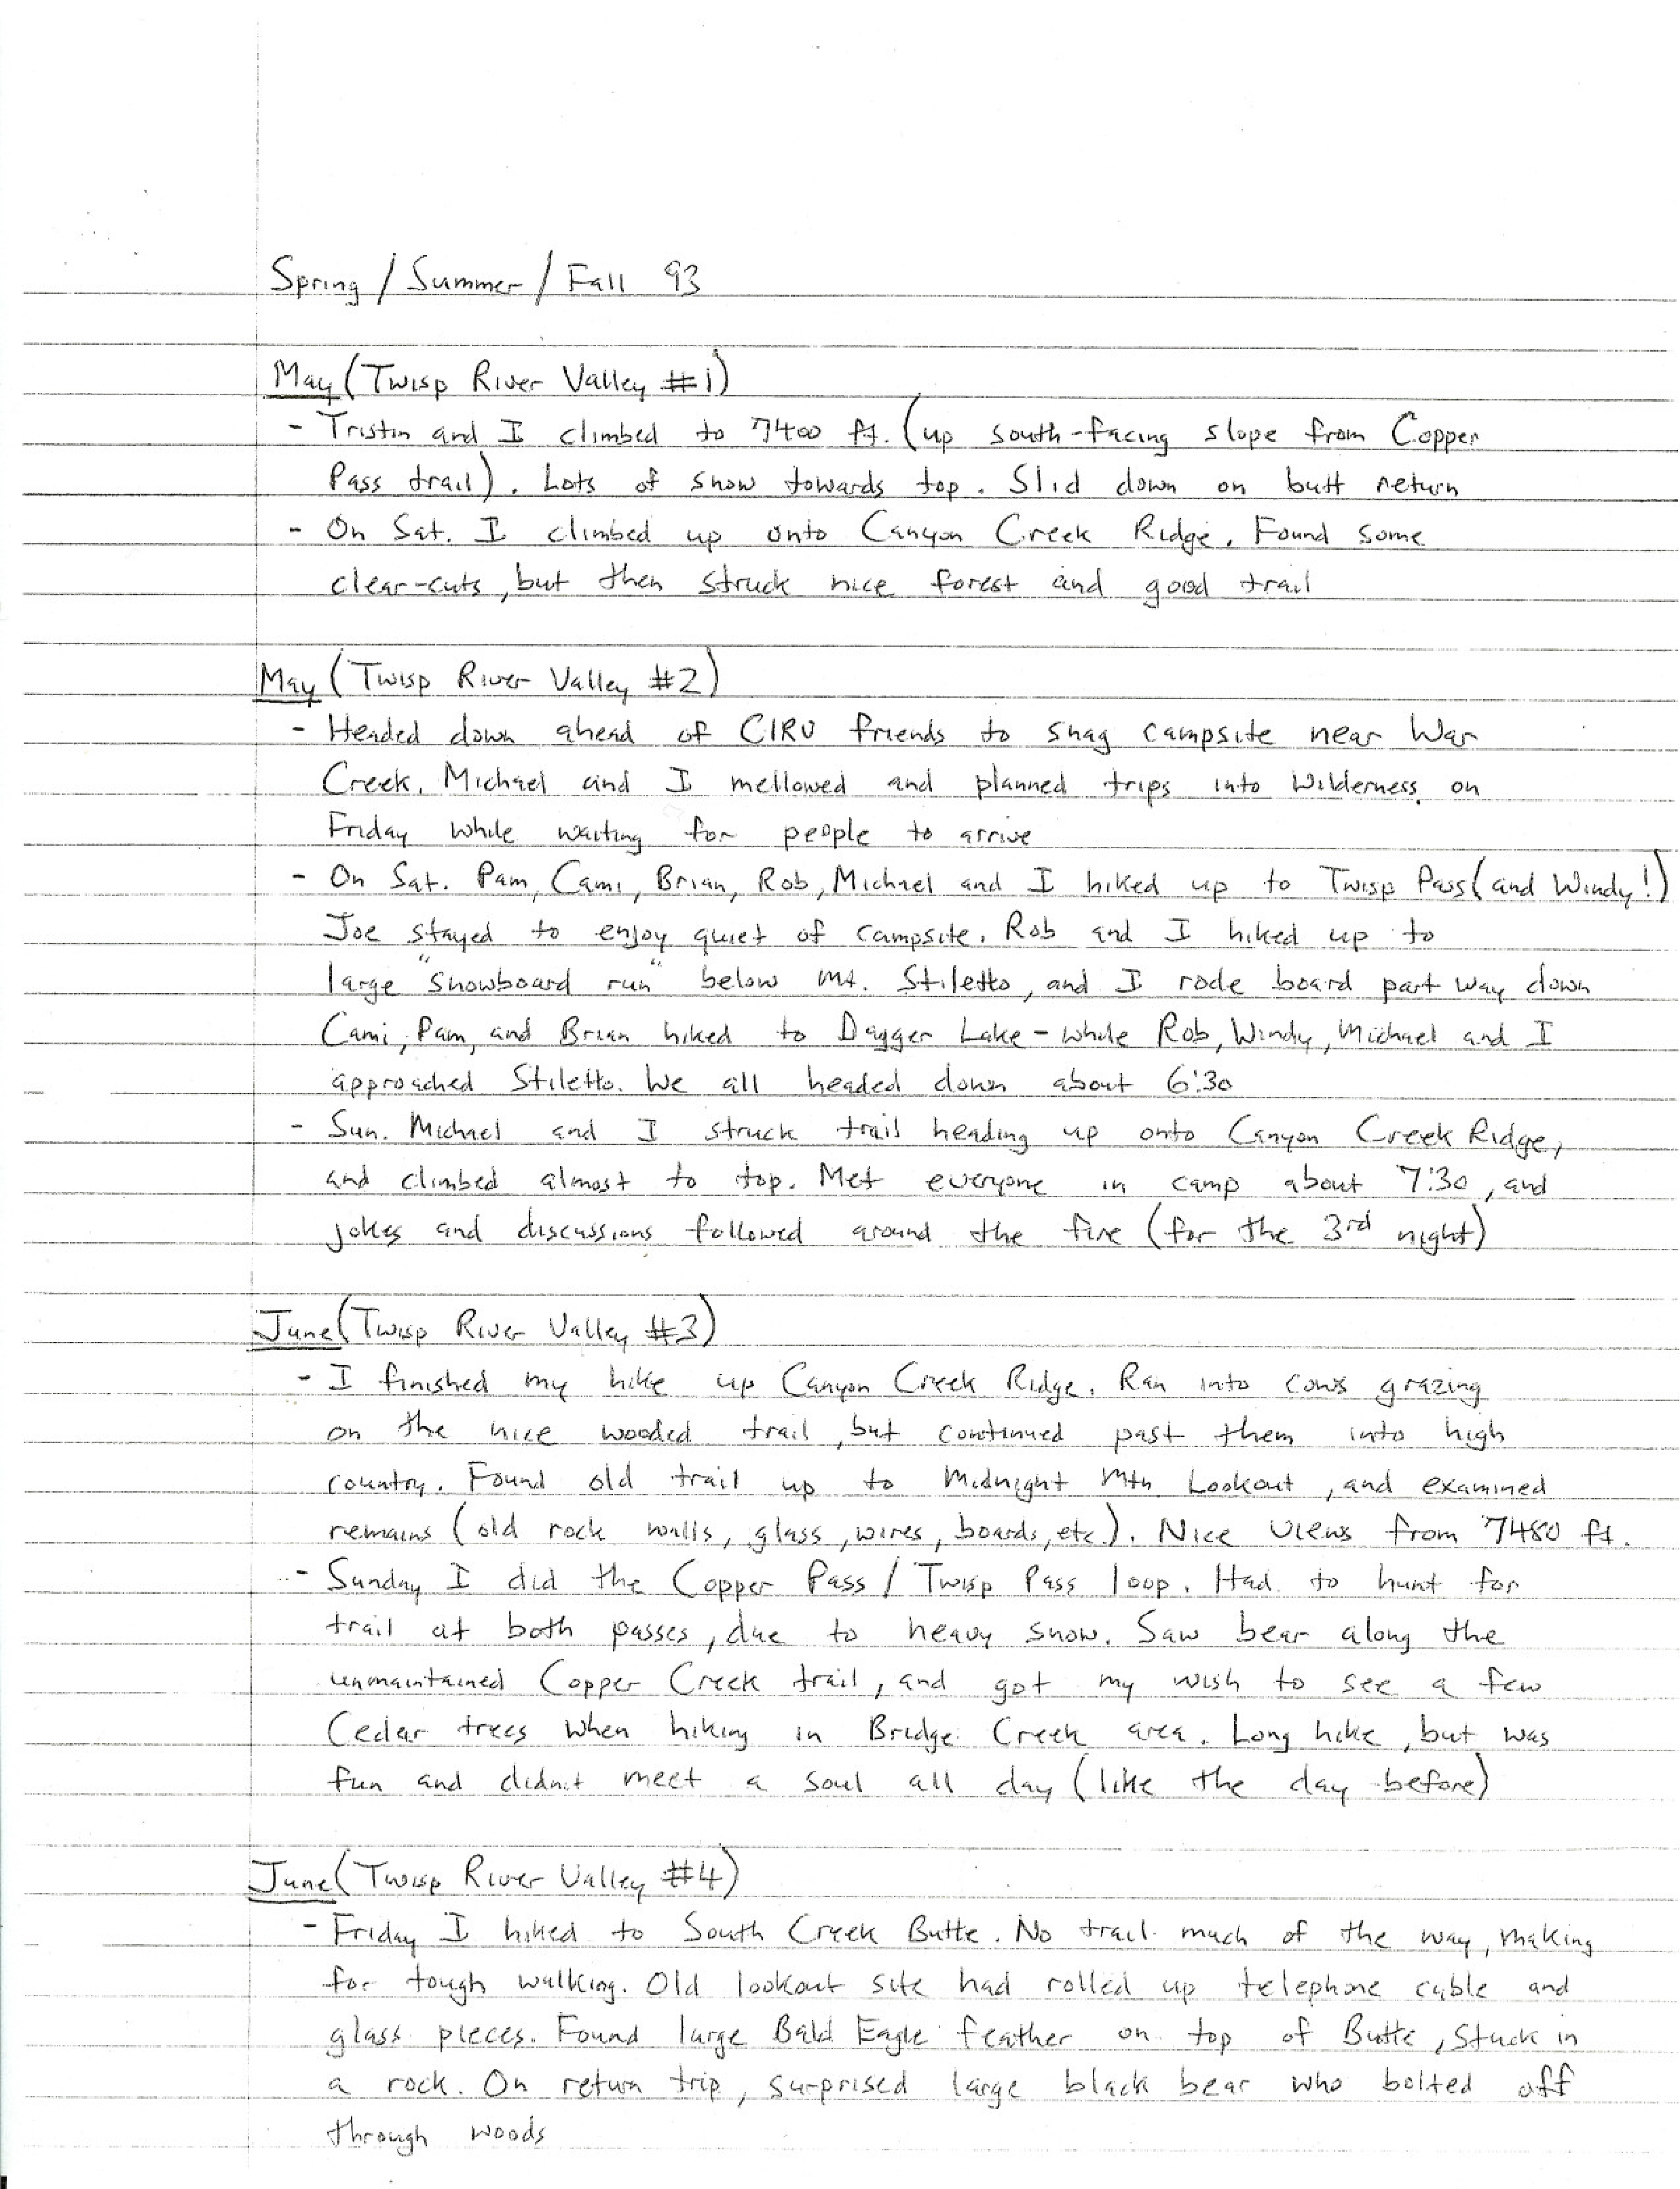 Spring / Summer / Fall 93
May (Twisp River Valley #1)
- Tristin and I climbed to 7400 ft. (up south-facing slope from Copper
Pass trail). Lots of snow towards top. Slid down on butt return
- On Sat. I climbed up onto Canyon Creek Ridge. Found some
clear-cuts, but then struck nice forest and good trail
May (Twisp River Valley #2)
- Headed down ahead of CIRU friends to snag campsite near War
Creek. Michael and I mellowed and planned trips into Wilderness on
Friday while waiting for people to arrive
- On Sat. Pam, Cami, Brian, Rob, Michael and I hiked up to Twisp Pass (and Windy!)
Joe stayed to enjoy quiet of campsite. Rob and I hiked up to
large "snowboard run" below Mt. Stiletto, and I rode board part way down
Cami, Pam, and Brian hiked to Dagger Lake - while Rob, Windy, Michael and I
approached Stiletto. We all headed down about 6:30
- Sun. Michael and I struck trail heading up onto Canyon Creek Ridge,
and climbed almost to top. Met everyone in camp about 7:30, and
jokes and discussions followed around the fire (for the 3rd night)
June (Twisp River Valley #3)
- I finished my hike up Canyon Creek Ridge. Ran into cows grazing
on the nice wooded trail, but continued past them into high
country. Found old trail up to Midnight Mtn Lookout, and examined
remains (old rock walls, glass, wires, boards, etc.). Nice views from 7480 ft.
- Sunday I did the Copper Pass / Twisp Pass loop. Had to hunt for
trail at both passes, due to heavy snow. Saw bear along the
unmaintained Copper Creek trail, and got my wish to see a few
Cedar trees when hiking in Bridge Creek area. Long hike, but was
fun and didn't meet a soul all day (like the day before)
June (Twisp River Valley #4)
- Friday I hiked to South Creek Butte. No trail much of the way, making
for tough walking. Old lookout site had rolled up telephone cable and
glass pieces. Found large Bald Eagle feather on top of Butte, stuck in
a rock. On return trip, surprised large black bear who bolted off
through woods